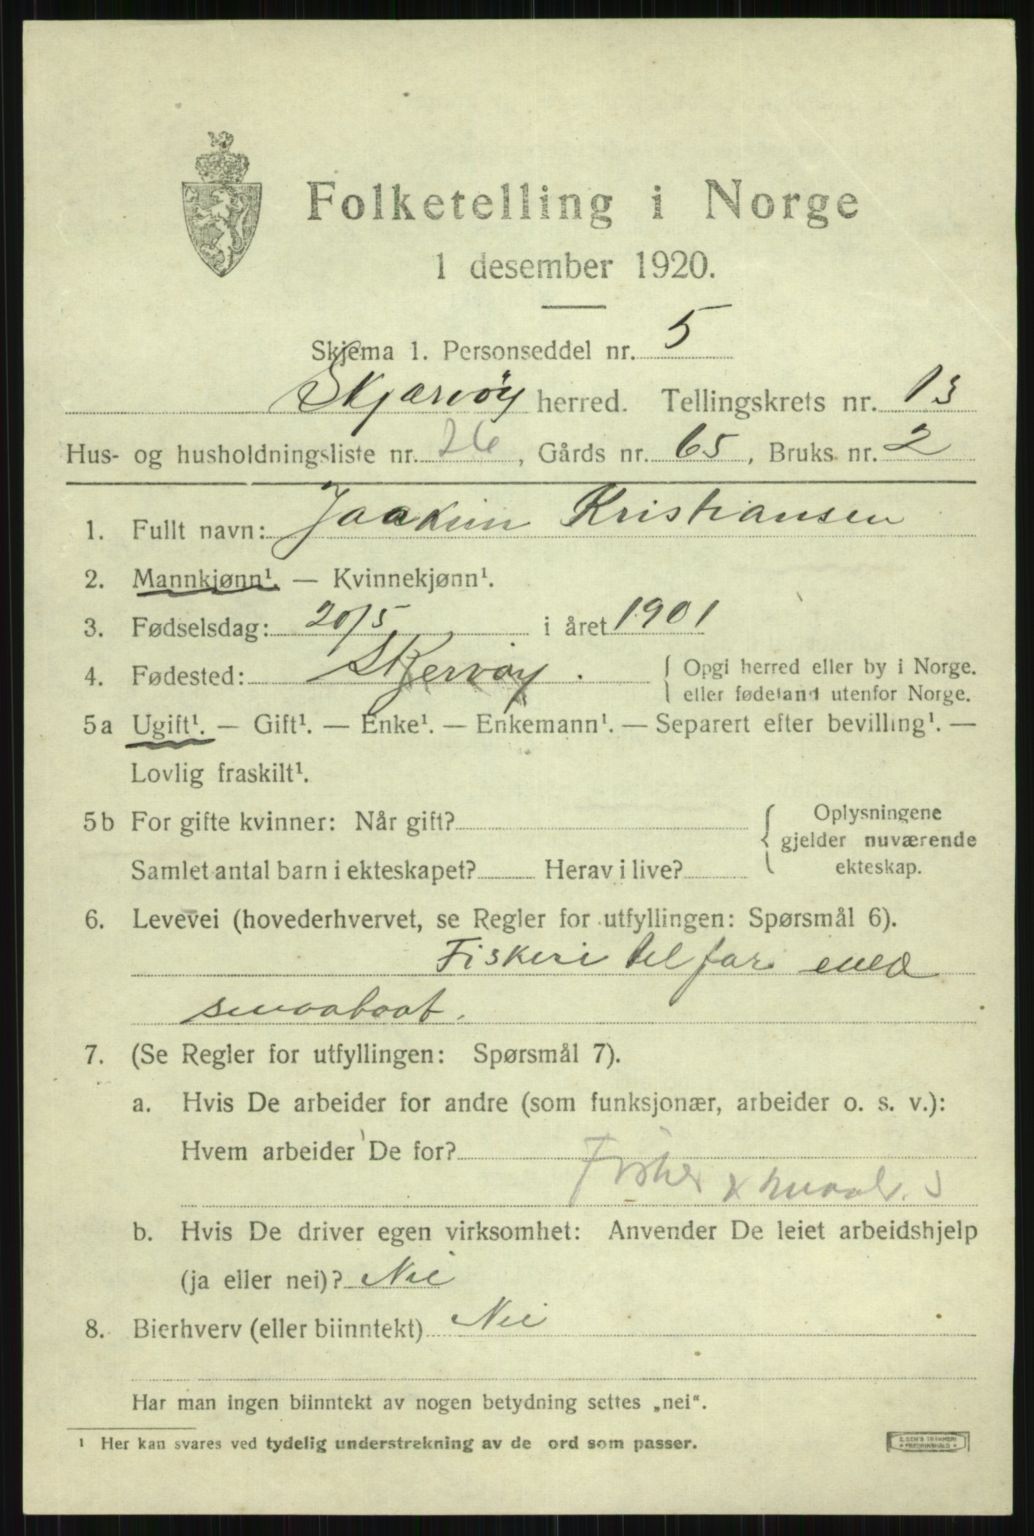 Folketelling i Norge
1 desember 1920.
Skjema 1. Personseddel nr. 5
Skjærvöy herred. Tellingskrets nr. 13
Hus- og husholdningsliste nr. 26, Gårds nr. 65, Bruks nr. 2
1. Fullt navn: Joakim Kristiansen
2. Mannkjønn¹. — Kvinnekjønn¹.
3. Fødselsdag: 20/5 i året 1901
4. Fødested: Skjervöy. { Opgi herred eller by i Norge.
eller fødeland utenfor Norge.
5a Ugift¹. — Gift¹. — Enke¹. — Enkemann¹. — Separert efter bevilling¹. —
Lovlig fraskilt¹.
5b For gifte kvinner: Når gift? { Oplysningene
gjelder nuværende
Samlet antal barn i ekteskapet? Herav i live? ekteskap.
6. Levevei (hovederhvervet, se Regler for utfyllingen: Spørsmål 6).
Fiskeri til far med
smaabaat.
7. (Se Regler for utfyllingen: Spørsmål 7).
a. Hvis De arbeider for andre (som funksjonær, arbeider o. s. v.):
Hvem arbeider De for?
Fisker x
b. Hvis De driver egen virksomhet: Anvender De leiet arbeidshjelp
(ja eller nei)? Nei
8. Bierhverv (eller biinntekt) Nei
Har man ingen biinntekt av nogen betydning settes „nei".
¹ Her kan svares ved tydelig understrekning av de ord som passer.